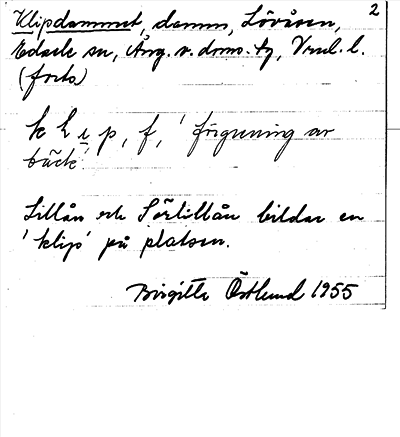 2
Klipdammet, damm, Lövåsen,
Edask sn, v. doms. , Vrml. l.
(forts)
k l i p, f, 'förgrening av
bäck'.
Lillån och Sörlillån bildar en
'klip' på platsen.
Birgitta Östlund 1955